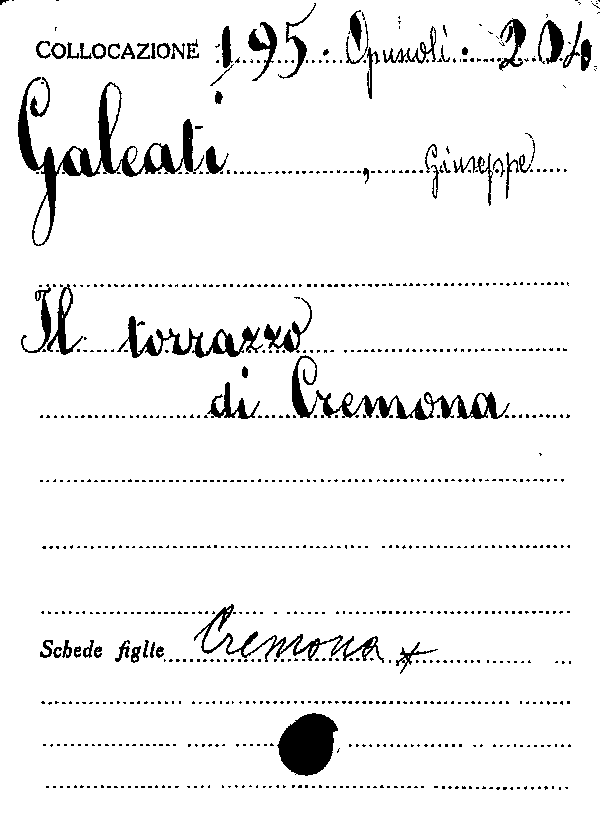 COLLOCAZIONE 195. Opuscoli. 204
Galeati, Giuseppe
Il torrazzo
di Cremona
Schede figlie Cremona *